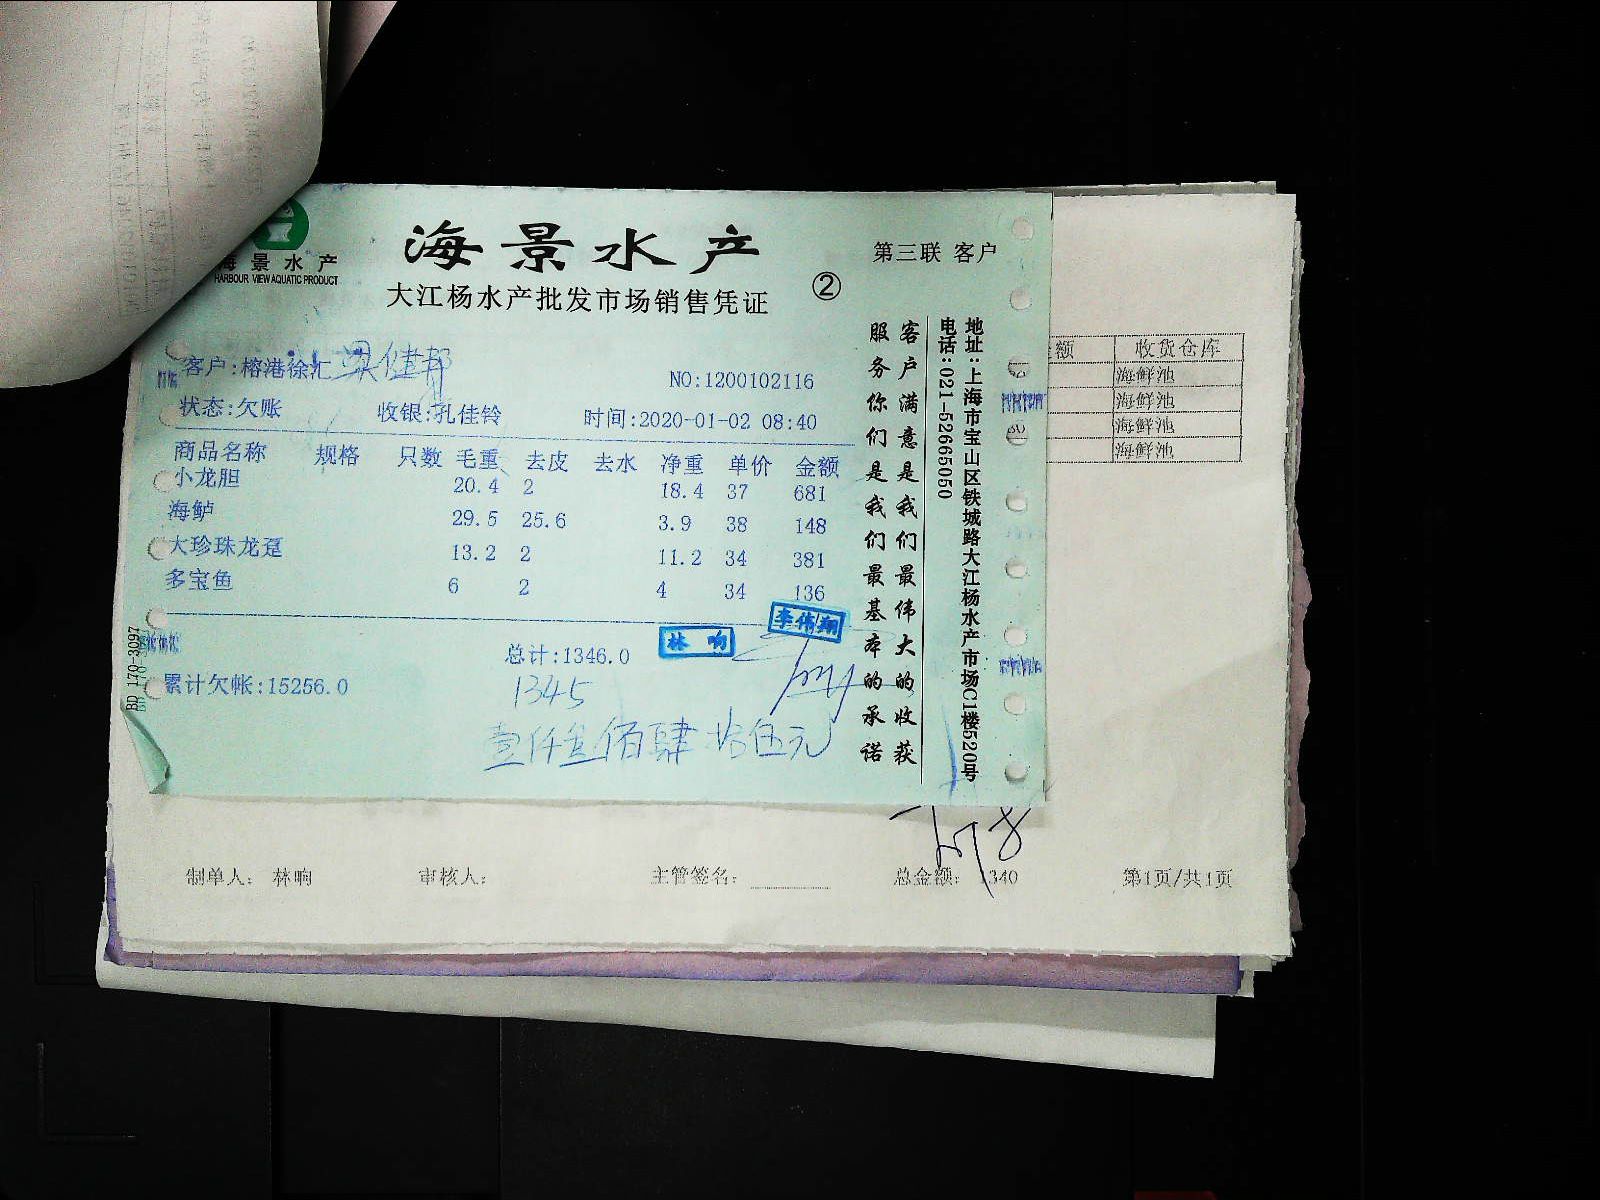 海景水产
HARBOUR VIEW AQUATIC PRODUCT
海景水产
大江杨水产批发市场销售凭证
②
第三联 客户
客户:榕港徐汇 梁健邦
NO:1200102116
状态:欠账 收银:孔佳铃 时间:2020-01-02 08:40
商品名称 规格 只数 毛重 去皮 去水 净重 单价 金额
小龙胆 20.4 2 18.4 37 681
海鲈 29.5 25.6 3.9 38 148
大珍珠龙趸 13.2 2 11.2 34 381
多宝鱼 6 2 4 34 136
林响
李伟翔
总计:1346.0
累计欠帐:15256.0
1345
壹仟叁佰肆拾伍元
客户满意是我们最伟大的收获
服务你们是我们最基本的承诺
地址:上海市宝山区铁城路大江杨水产市场C1楼520号
电话:021-52665050
BD 170-3097
额 收货仓库
海鲜池
海鲜池
海鲜池
海鲜池
制单人: 林响 审核人: 主管签名: 总金额: 1340 第1页/共1页